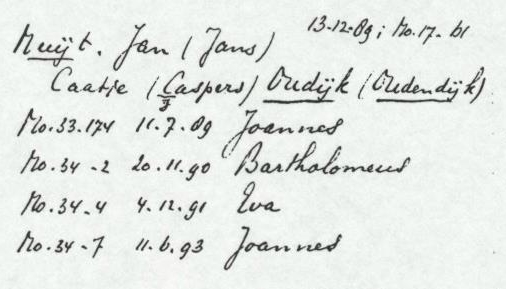 13-12-89; Mo.17-61
Muijt. Jan (Jans)
Caatje (Caspers) Oudijk (Oudendijk)
Mo.33.174 11.7.89 Joannes
Mo.34-2 20.11.90 Bartholomeus
Mo.34-4 4.12.91 Eva
Mo.34-7 11.6.93 Joannes